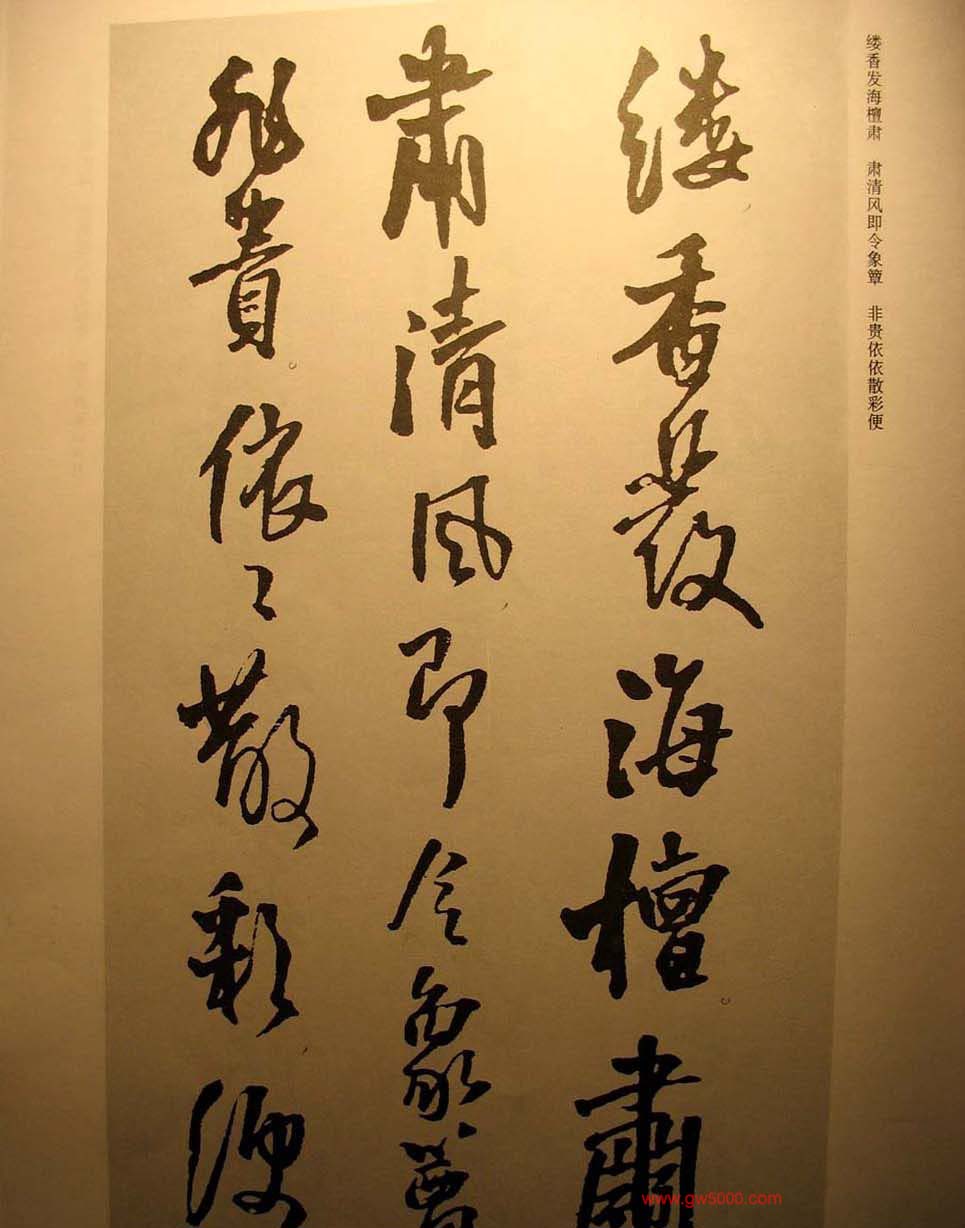 缕香发海檀肃　肃清风即令象簟　非贵依依散彩便
缕香發海檀肅
肅清風即今象簟
非貴依〻散彩便
www.gw5000.com